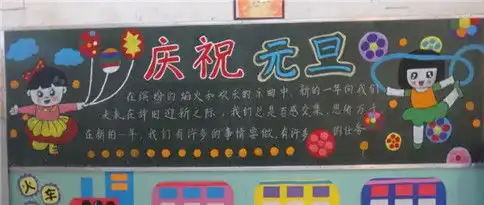 庆祝元旦
在缤纷的焰火和欢乐的乐曲中，新的一年向我们
走来在辞旧迎新之际，我们总是百感交集，思绪万千
在新的一年，我们有许多的事情要做，有许多 的任务
火车